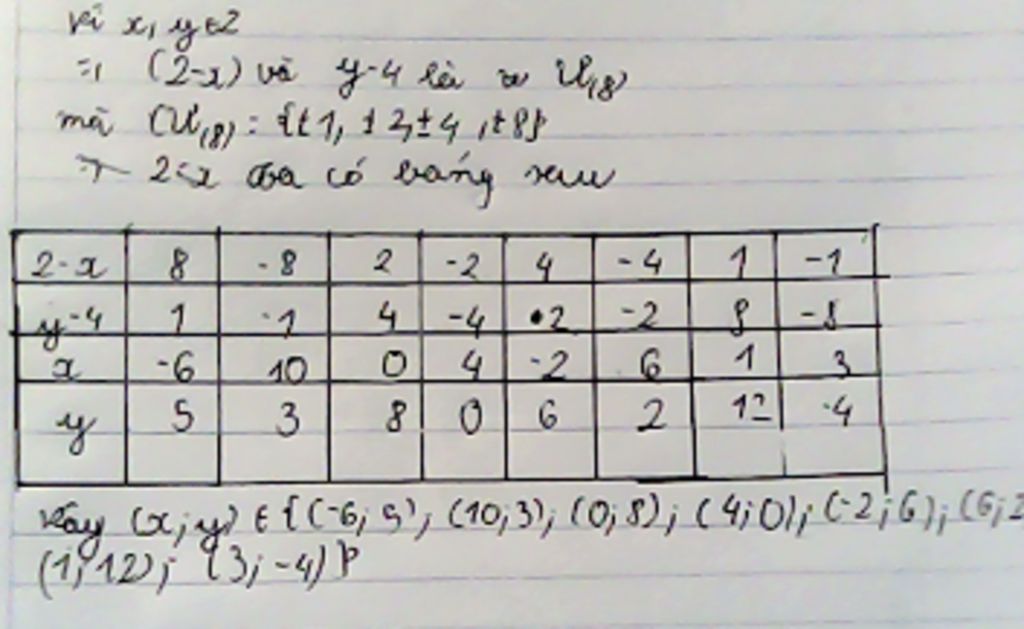 Vì x, y ∈ Z
=> (2-x) và y-4 là Ư(8)
mà Ư(8) = {±1, ±2, ±4, ±8}
=> 2-x ta có bảng sau
2-x 8 -8 2 -2 4 -4 1 -1
y-4 1 -1 4 -4 2 -2 8 -8
x -6 10 0 4 -2 6 1 3
y 5 3 8 0 6 2 12 -4
Vậy (x;y) ∈ {(-6;5); (10;3); (0;8); (4;0); (-2;6); (6;2
(1;12); (3;-4)}